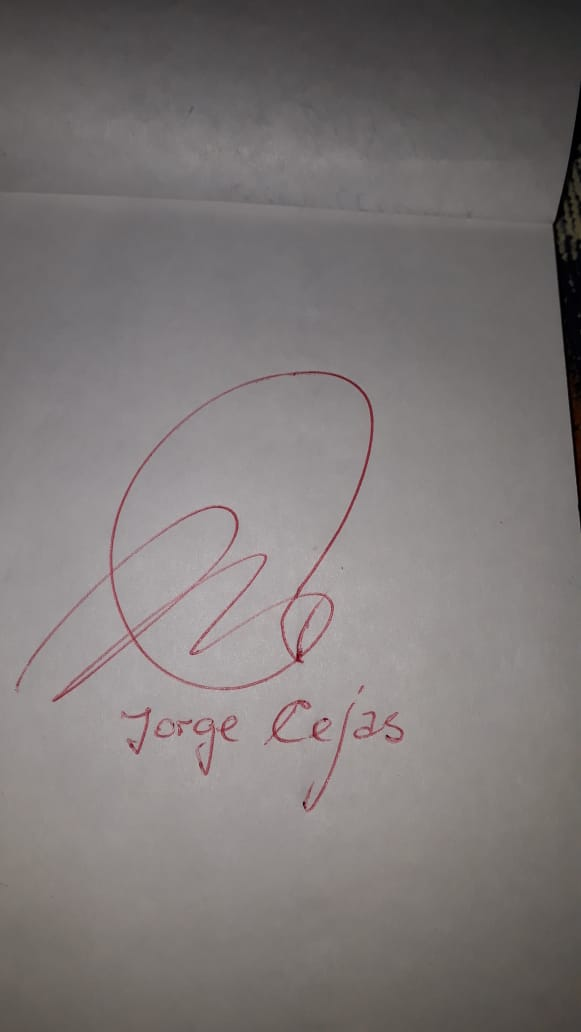 Jorge Cejas